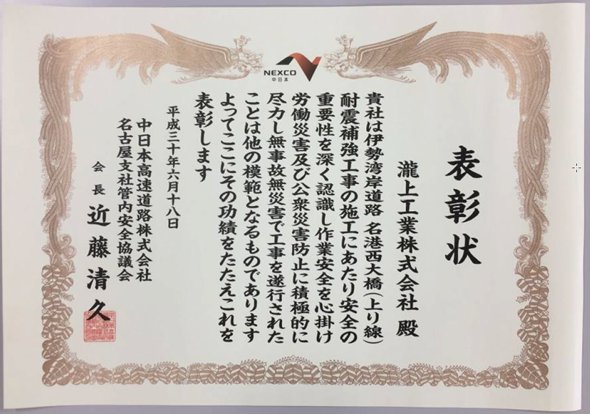 NEXCO
中日本
表彰状
瀧上工業株式会社 殿
貴社は伊勢湾岸道路 名港西大橋(上り線)
耐震補強工事の施工にあたり安全の
重要性を深く認識し作業安全を心掛け
労働災害及び公衆災害防止に積極的に
尽力し無事故無災害で工事を遂行された
ことは他の模範となるものであります
よってここにその功績をたたえこれを
表彰します
平成三十年六月十八日
中日本高速道路株式会社
名古屋支社管内安全協議会
会長 近藤清久